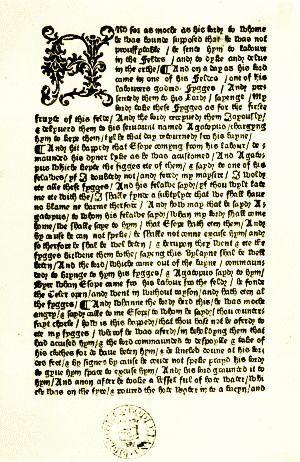 And for as moche as his lord to whome
he was bounde supposed that he was not
prouffytable / he sente hym to laboure
in the feldes / and to dyke and delue
in the erthe / ¶ And on a day as his lord
came in one of his feldes / one of his
labourers gadred fygges / And pre
sented them to his lord / sayenge / My
lord take these fygges as for the first
fruyte of this felde / And the lord receyued them Ioyously /
& delyuered them to his seruaunt named Agatopus / chargyng
hym to kepe them / tyl he that day retourned fro his bayne /
¶ And hit happed that Esope comyng from his labour / de
maunded his dyner lyke as he was acustomed / And Agato
pus whiche kepte the figges ete of them / & sayd to one of his
felawes / yf I doubted not / and fered my mayster / I wolde
ete alle these fygges / And his felawe sayd / yf thou wylt late
me ete with the / I shalle fynde a subtylyte that we shall haue
no blame ne harme therfore / And how may that be sayd A
gatopus / to whom his felawe sayd / whan my lord shall come
home / we shalle saye to hym / that Esope hath eten them / And
by cause he can not speke / he shalle not conne excuse hym / and
so therfore he shal be wel beten / & herupon they wente & ete the
fygges bitwene them bothe / sayeng this vylayne shal be wel
beten / And the lord / whiche came out of the bayne / commaun
ded to brynge to hym his fygges / & Agatopus sayd to hym /
Syre whan Esope came fro his labour fro the felde / he fonde
the Celer open / and wente in without reyson / and hath eten al
the fygges / ¶ And whanne the lord herd this / he was moche
angry / & sayd calle to me Esope / to whom he sayd / thou counterf
fayt chorle / how is this happed / that thou hast not be aferd to
ete my fygges / wherof he was aferd / in beholdyng them that
had accused hym / & the lord commaunded to despoylle & take of
his clothes for to haue beten hym / & he kneled doune at his lor
des feet / & by signes by cause he coude not speke prayd his lord
to gyue hym space to excuse hym / And his lord graunted it to
hym / And anon after he tooke a vessel ful of hote water / whi
che was on the fyre / & poured the hote water in to a bacyn / and